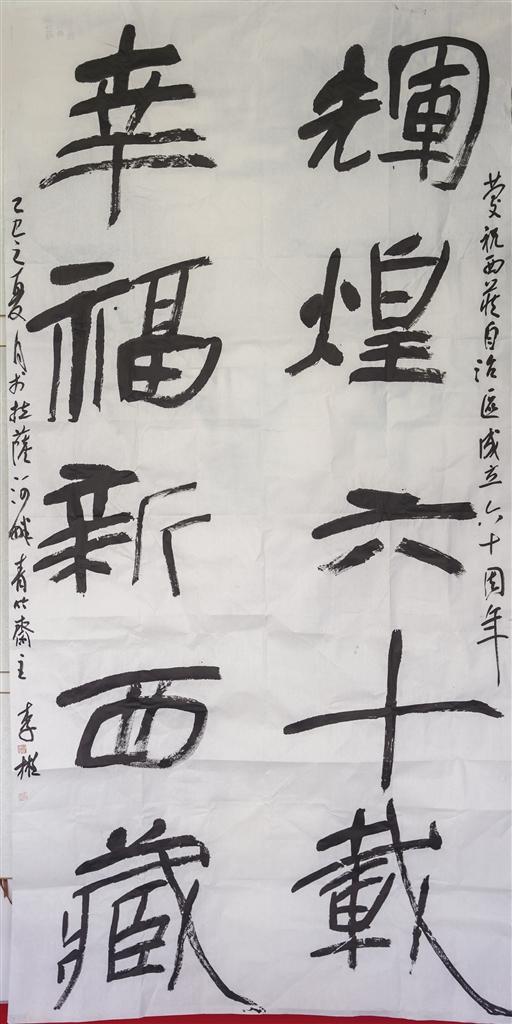 慶祝西藏自治區成立六十周年
輝煌六十載
幸福新西藏
乙巳之夏月於拉薩河畔青竹齋主 李